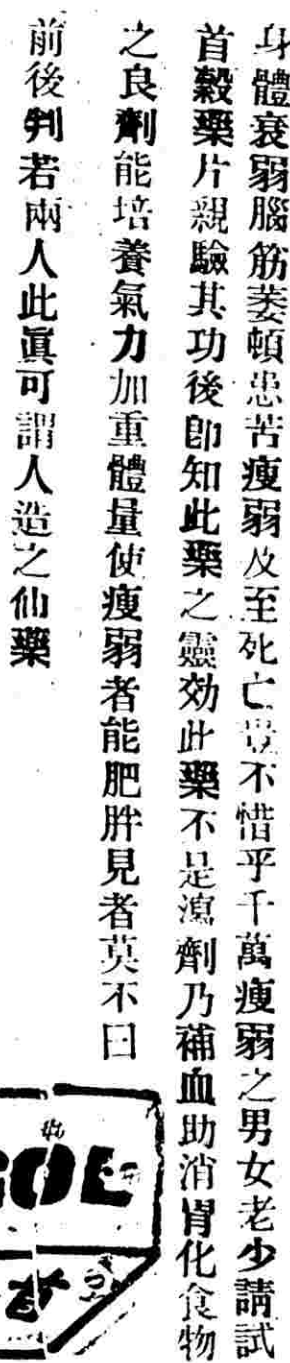 身體衰弱腦筋萎頓患苦瘦弱及至死亡豈不惜乎千萬瘦弱之男女老少請試
首穀藥片親驗其功後卽知此藥之靈効此藥不是瀉劑乃補血助消胃化食物
之良劑能培養氣力加重體量使瘦弱者能肥胖見者莫不曰
前後判若兩人此眞可謂人造之仙藥
GOL